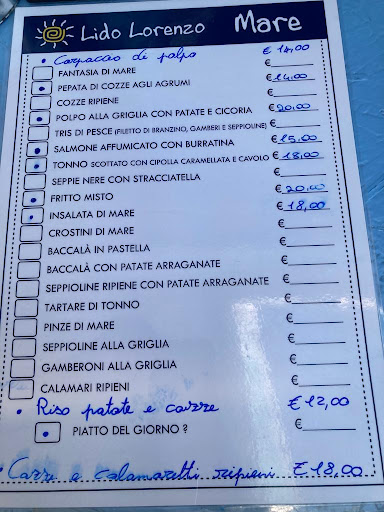 Lido Lorenzo Mare
• Carpaccio di polpo € 14,00
FANTASIA DI MARE €
• PEPATA DI COZZE AGLI AGRUMI € 14,00
COZZE RIPIENE €
• POLPO ALLA GRIGLIA CON PATATE E CICORIA € 20,00
TRIS DI PESCE (FILETTO DI BRANZINO, GAMBERI E SEPPIOLINE) €
• SALMONE AFFUMICATO CON BURRATINA € 15,00
• TONNO SCOTTATO CON CIPOLLA CARAMELLATA E CAVOLO € 18,00
SEPPIE NERE CON STRACCIATELLA €
• FRITTO MISTO € 20,00
• INSALATA DI MARE € 18,00
CROSTINI DI MARE €
BACCALÀ IN PASTELLA €
BACCALÀ CON PATATE ARRAGANATE €
SEPPIOLINE RIPIENE CON PATATE ARRAGANATE €
TARTARE DI TONNO €
PINZE DI MARE €
SEPPIOLINE ALLA GRIGLIA €
GAMBERONI ALLA GRIGLIA €
CALAMARI RIPIENI €
• Riso patate e cozze € 12,00
• PIATTO DEL GIORNO ?
• Cozze e calamaretti ripieni € 18,00